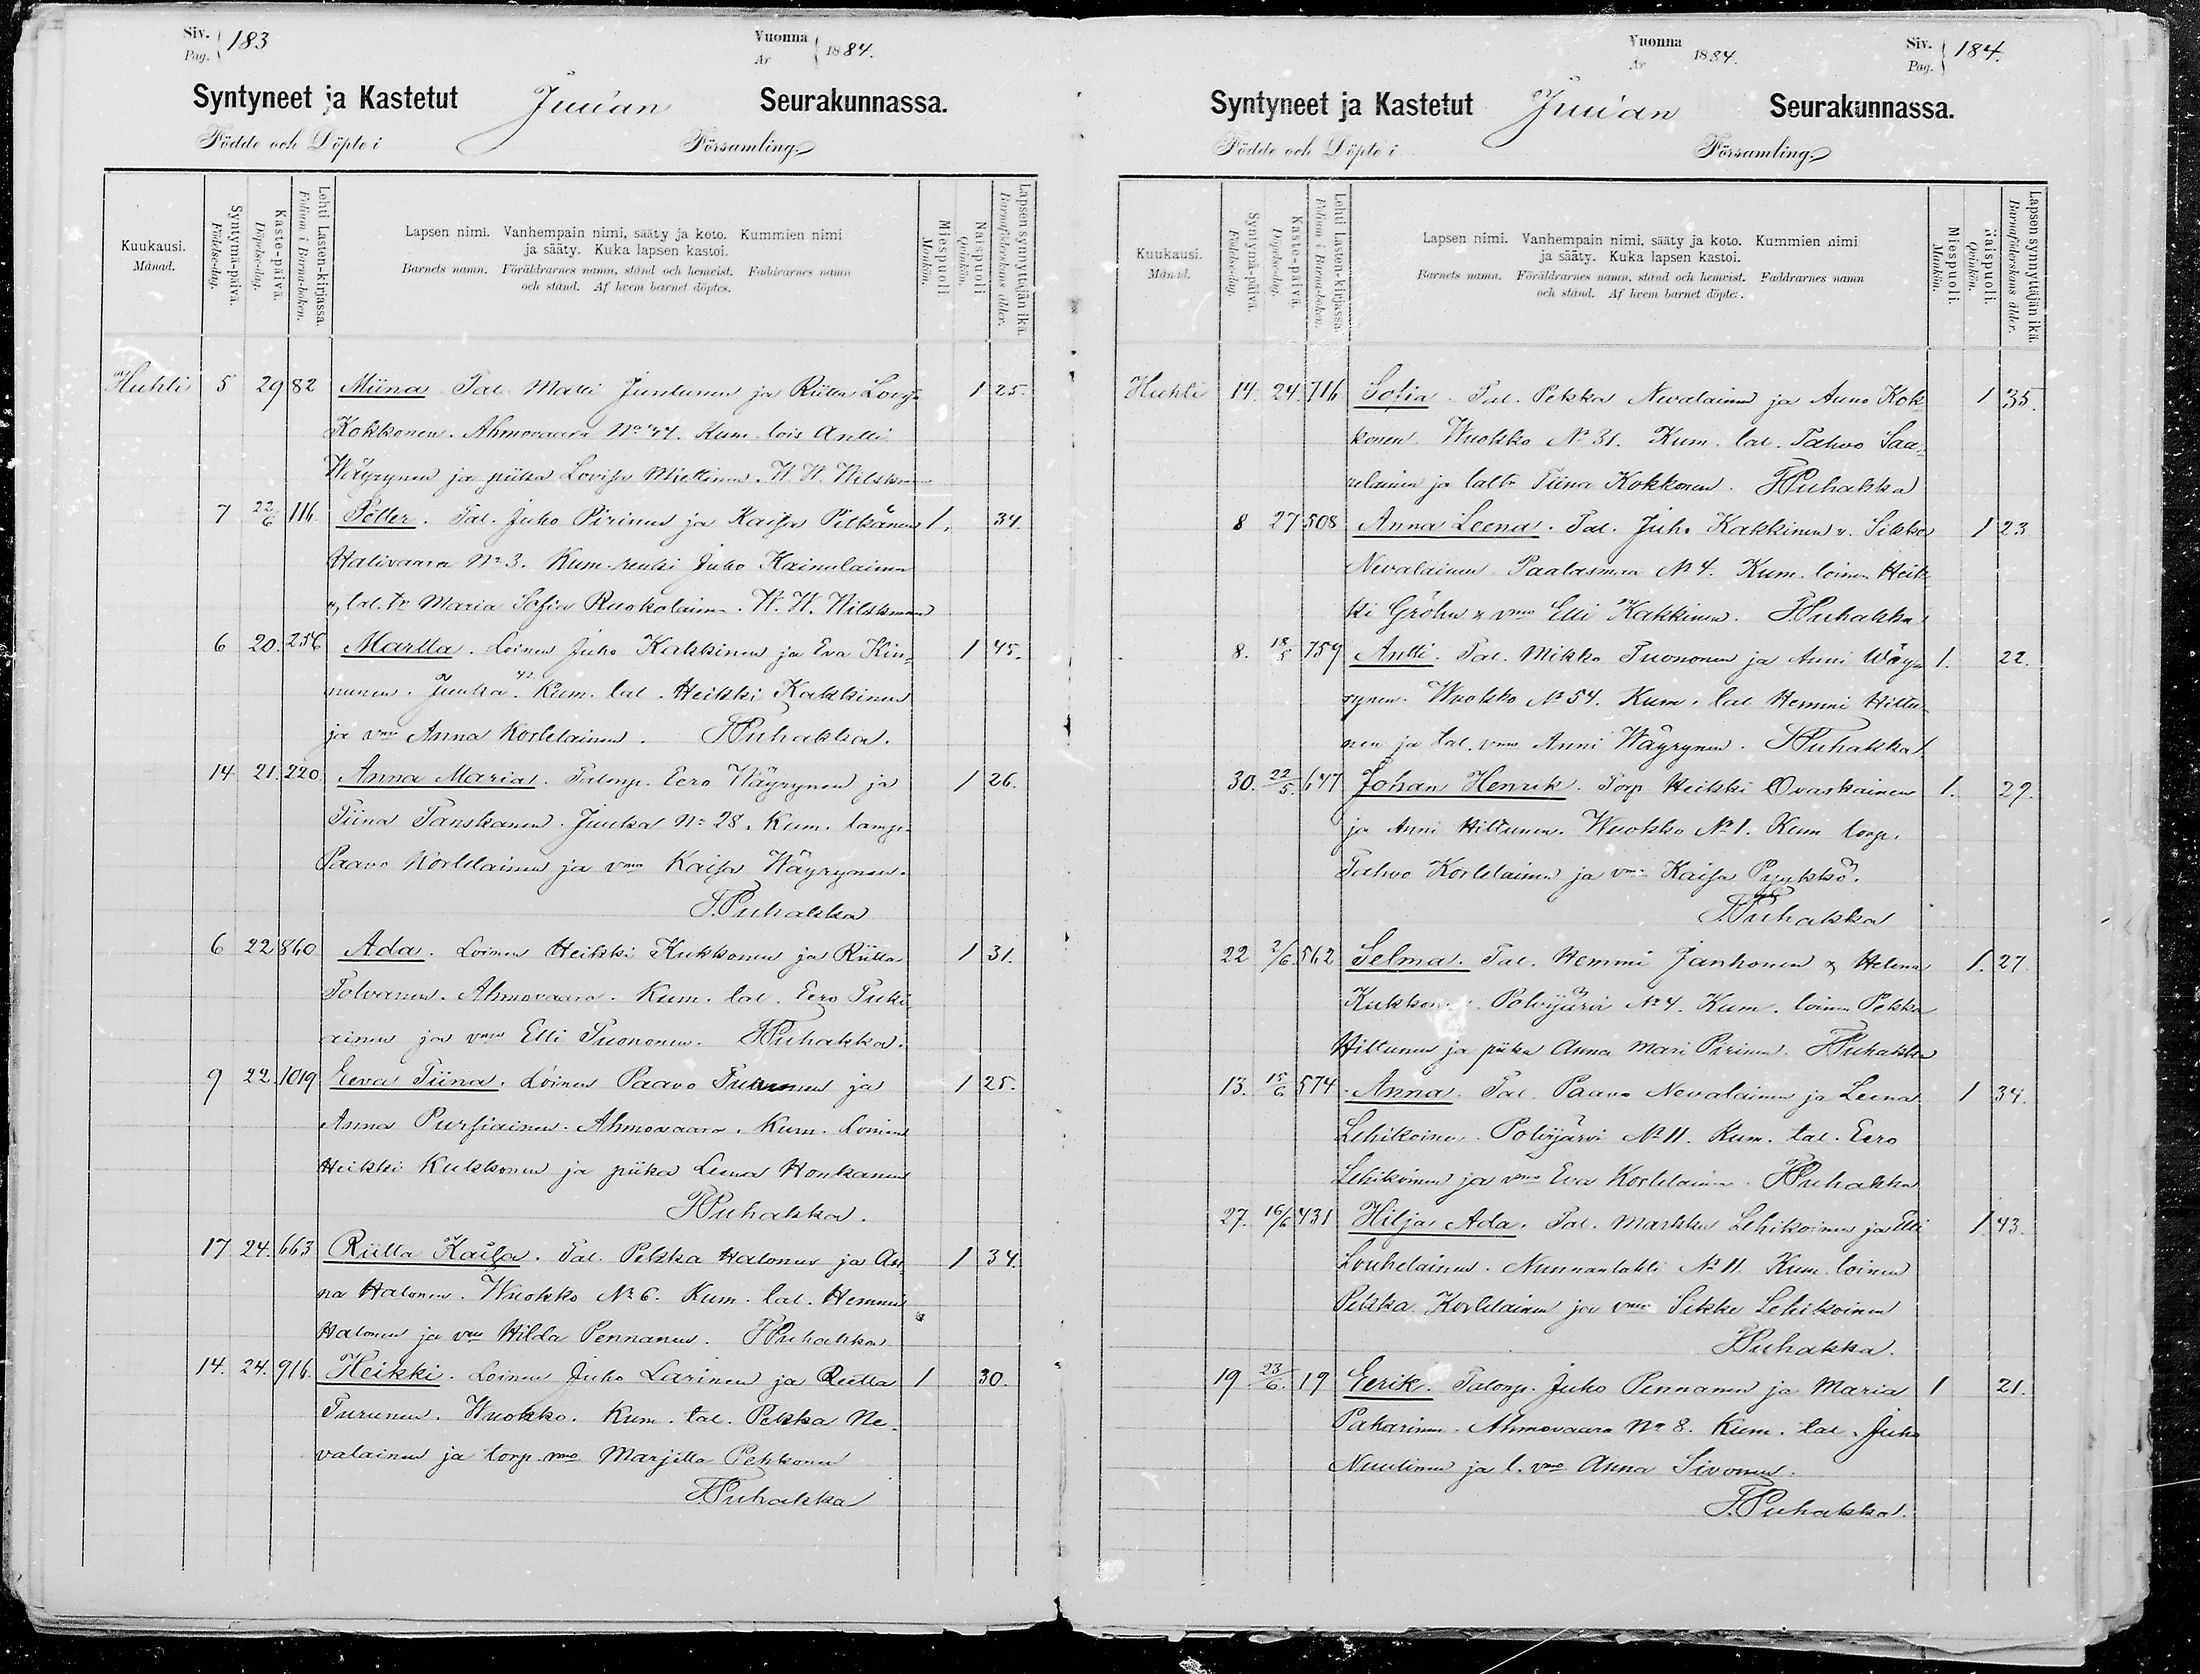 Siv. Pag. 183
Vuonna År 1884.
Syntyneet ja Kastetut Juuan Seurakunnassa.
Födde och Döpte i Församling.
Kuukausi. Månad.
Syntymä-päivä. Födelse-dag.
Kaste-päivä. Döpelse-dag.
Lehti Lasten-kirjassa. Folium i Barna-boken.
Lapsen nimi. Vanhempain nimi, sääty ja koto. Kummien nimi
ja sääty. Kuka lapsen kastoi.
Barnets namn. Föräldrarnes namn, stånd och hemvist. Faddrarnes namn
och stånd. Af hvem barnet döptes.
Miespuoli. Mankön.
Naispuoli. Qvinkön.
Lapsen synnyttäjän ikä. Barnaföderskans ålder.
Huhti 5 29 82 Miina. Tal. Matti Juntunen ja Riitta Lovisa 1 25.
Kokkonen. Ahmovaara No 44. Kum. lois Antti
Wäyrynen ja piika Lovisa Miettinen. W. W. Wilskman
7 22/6 116 Petter. Tal. Juho Pirinen ja Kaisa Pitkänen 1. 34.
Halivaara No 3. Kum. renki Juho Kainulainen
& tal. tr Maria Sofia Ruokolainen. W. W. Wilskman
6 20. 256 Martta. Loinen Juho Kakkinen ja Eva Kin- 1 45.
nunen. Juuka 42. Kum. tal. Heikki Kakkinen
ja vmo Anna Kortelainen. TPuhakka.
14 21. 220. Anna Maria. Talonp. Eero Wäyrynen ja 1 26.
Tiina Tanskanen. Juuka No 28. Kum. lamp.
Paavo Kortelainen ja vmo Kaisa Wäyrynen.
T.Puhakka
6 22 860 Ada. Loinen Heikki Kukkonen ja Riitta 1 31.
Tolvanen. Ahmovaara. Kum. tal. Eero Tuki-
ainen ja vmo Elli Tuononen. TPuhakka.
9 22. 1019 Eeva Tiina. Loinen Paavo Turunen ja 1 25.
Anna Pursiainen. Ahmovaara. Kum. Loinen
Heikki Kukkonen ja piika Leena Honkanen
TPuhakka.
17 24. 663 Riitta Kaisa. Tal. Pekka Halonen ja An- 1 34
na Halonen. Wuokko No 6. Kum. tal. Hemmi
Halonen ja vmo Hilda Pennanen. TPuhakka
14. 24. 916. Heikki. Loinen Juho Larinen ja Reetta 1 30.
Turunen. Wuokko. Kum. tal. Pekka Ne-
valainen ja torp. vmo Marjetta Pekkonen
T.Puhakka
Vuonna År 1884.
Siv. Pag. 184.
Syntyneet ja Kastetut Juuan Seurakunnassa.
Födde och Döpte i Församling.
Kuukausi. Månad.
Syntymä-päivä. Födelse-dag.
Kaste-päivä. Döpelse-dag.
Lehti Lasten-kirjassa. Folium i Barna-boken.
Lapsen nimi. Vanhempain nimi, sääty ja koto. Kummien nimi
ja sääty. Kuka lapsen kastoi.
Barnets namn. Föräldrarnes namn, stånd och hemvist. Faddrarnes namn
och stånd. Af hvem barnet döptes.
Miespuoli. Mankön.
Naispuoli. Qvinkön.
Lapsen synnyttäjän ikä. Barnaföderskans ålder.
Huhti 14. 24. 716 Sofia. Tal. Pekka Nevalainen ja Anna Kok- 1 35.
konen. Wuokko No 31. Kum. tal. Tahvo Saa-
relainen ja taltr Tiina Kokkonen. TPuhakka
8 27 508 Anna Leena. Tal. Juho Kakkinen v. Sikke 1 23
Nevalainen. Paalasmaa No 4. Kum. loinen Heik-
ki Gröhn & vmo Elli Kakkinen. TPuhakka
8. 18/5 759 Antti. Tal. Mikko Tuononen ja Anni Wäy- 1. 22.
rynen. Wuokko No 54. Kum. tal Hemmi Hiltu-
nen ja tal. vmo Anni Wäyrynen. TPuhakka.
30. 22/5. 647 Johan Henrik. Torp Heikki Ovaskainen 1. 29.
ja Anni Hiltunen. Wuokko No 1. Kum torp.
Tahvo Kortelainen ja vmo Kaisa Pyykkö.
T.Puhakka
22 2/6. 562 Selma. Tal. Hemmi Janhonen & Helena 1. 27.
Kukkonen. Polvijärvi No 4. Kum. loinen Pekka
Hiltunen ja piika Anna Mari Pirinen. TPuhakka
13. 15/6 574 Anna. Tal. Paavo Nevalainen ja Leena 1 34.
Lehikoinen. Polvijärvi No 11. Kum. tal. Eero
Lehikoinen ja vmo Eva Kortelainen. TPuhakka
27. 16/6 431 Hilja Ada. Tal. Markku Lehikoinen ja Elli 1. 43.
Louhelainen. Nunnanlahti No 11. Kum. loinen
Pekka Kortelainen ja vmo Sikke Lehikoinen
TPuhakka.
19 23/6. 19 Eerik. Talonp. Juho Pennanen ja Maria 1 21.
Pakarinen. Ahmovaara No 8. Kum. tal. Juho
Nuutinen ja l. vmo Anna Sivonen.
T.Puhakka.